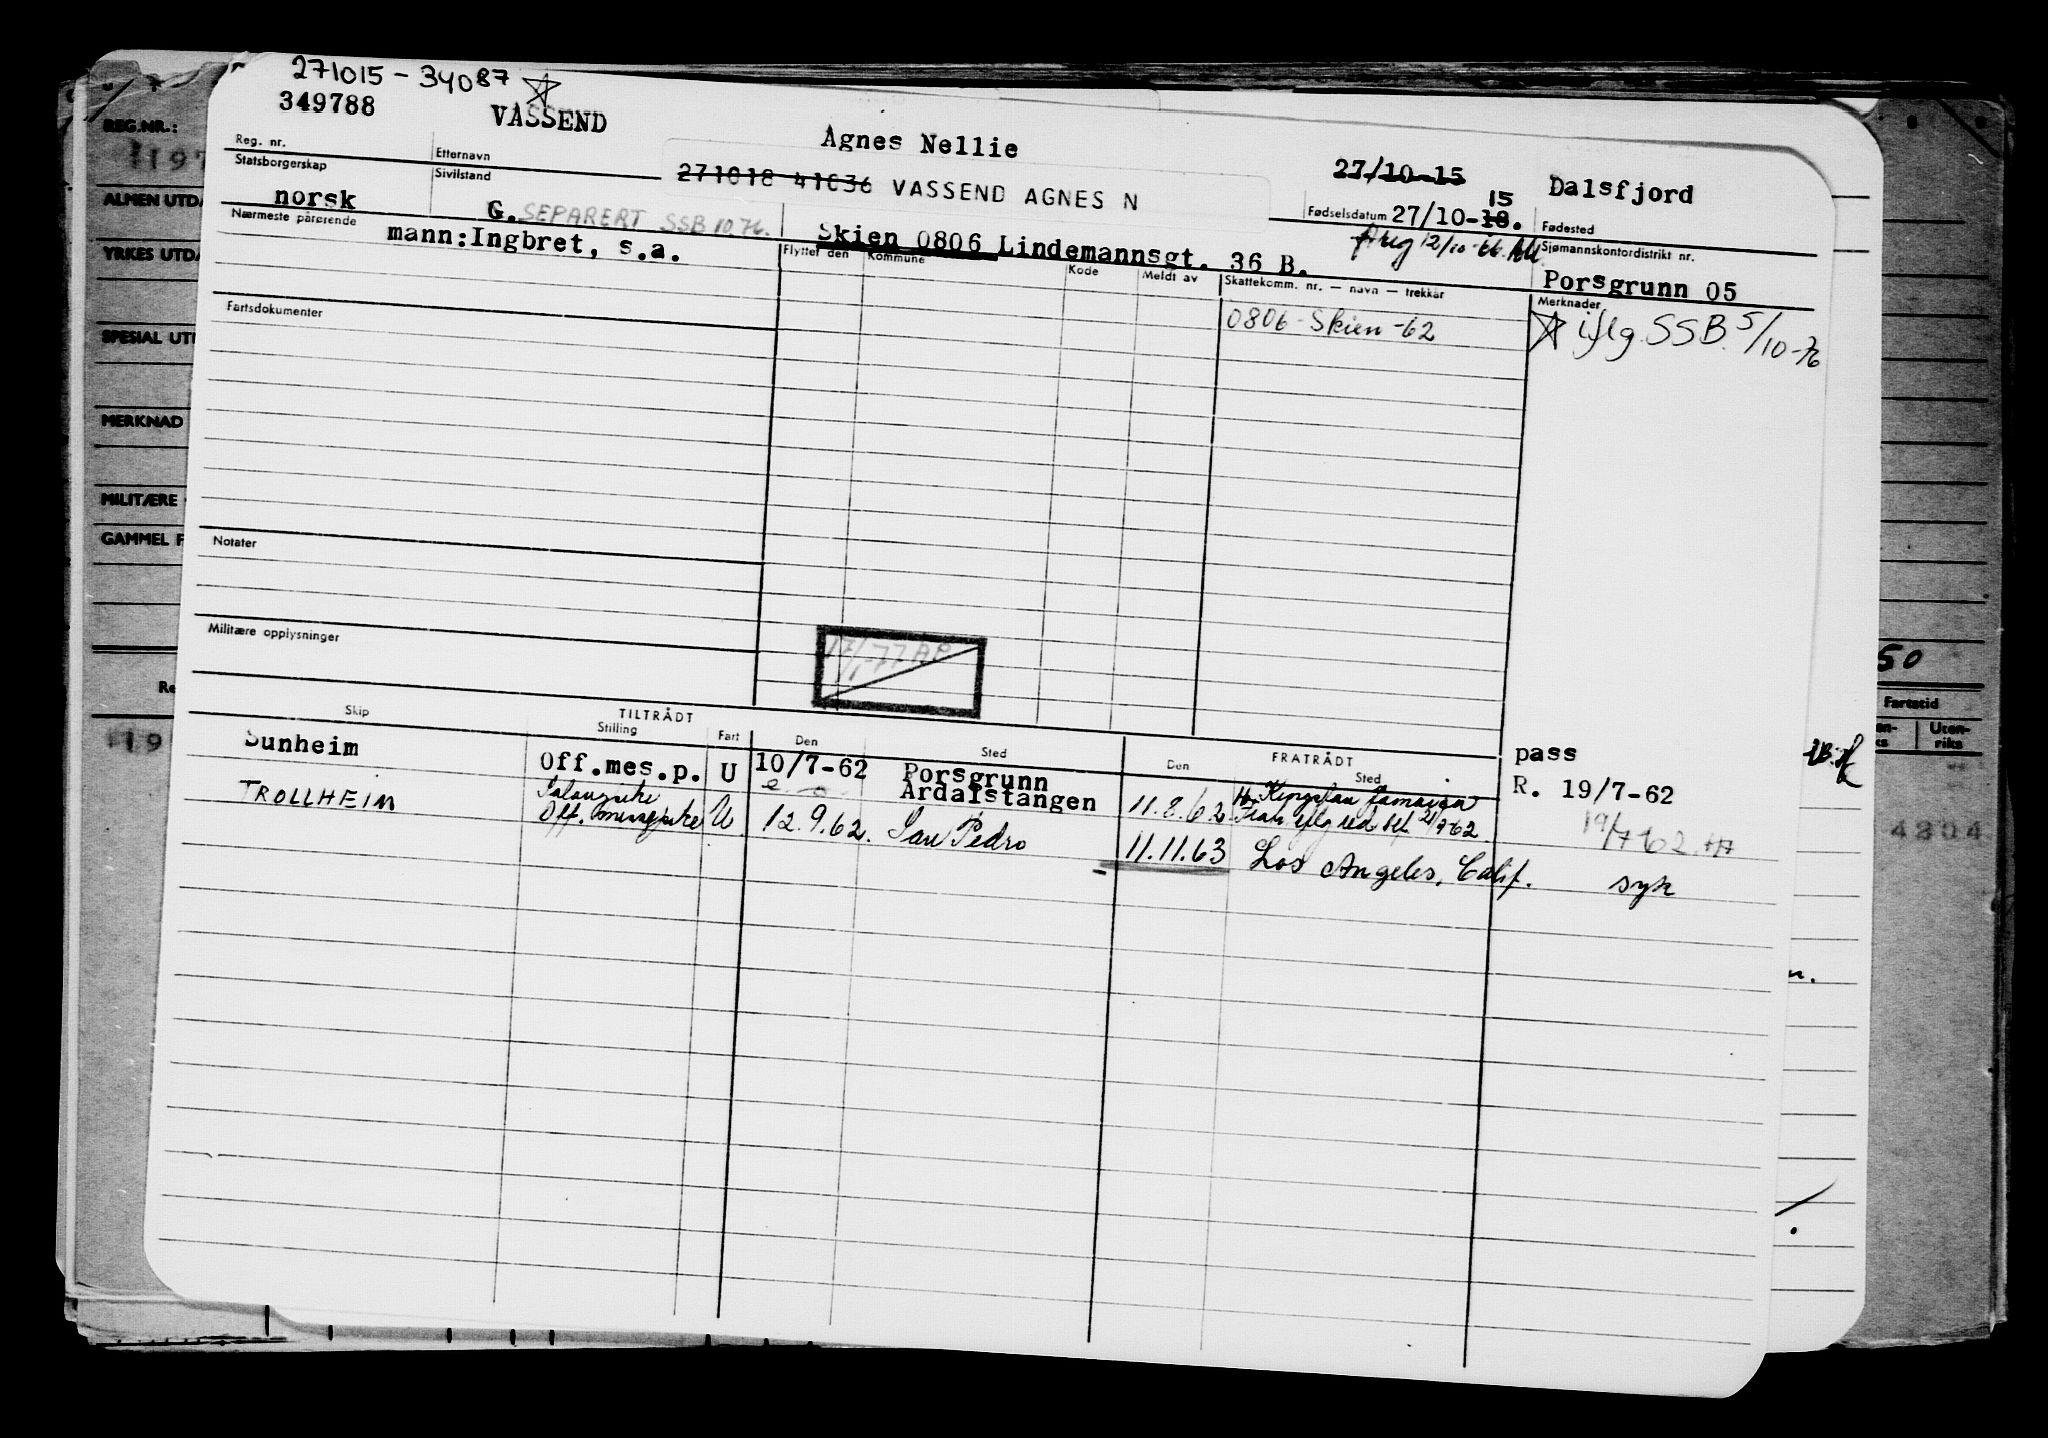 271015 - 34087
349788 VASSEND Agnes Nellie 27/10-15 Dalsfjord
Reg. nr. Etternavn 271018 41036 VASSEND AGNES N Fødselsdatum 27/10-18. 15 Fødested
Statsborgerskap Sivilstand
norsk G. SEPARERT SSB 10.76.
12/10-66 Sjømannskontordistrikt nr.
Nærmeste pårørende Skien 0806 Lindemannsgt. 36 B. Porsgrunn 05
mann:Ingbret, s.a.
Flyttet den Kommune Kode Meldt av Skattekomm. nr. — navn — trekkår Merknader
Fartsdokumenter 0806-Skien-62 iflg. SSB 5/10-76
Notater
Militære opplysninger
17/1-77 AP
Skip TILTRÅDT Stilling Fart Den Sted FRATRÅDT Den Sted
Sunheim Off.mes.p. U 10/7-62 Porsgrunn pass
Årdalstangen 11.8.62 Kingston Jamaica R. 19/7-62
TROLLHEIM Off. U 12.9.62. San Pedro 19/7 62
11.11.63 Los Angeles, Calif. syk
REG.NR.:
197
ALMEN UTD
YRKES UTD
SPESIAL UT
MERKNAD
MILITÆRE
GAMMEL F
Re
19
50
Fartstid
Uten-
riks
4204